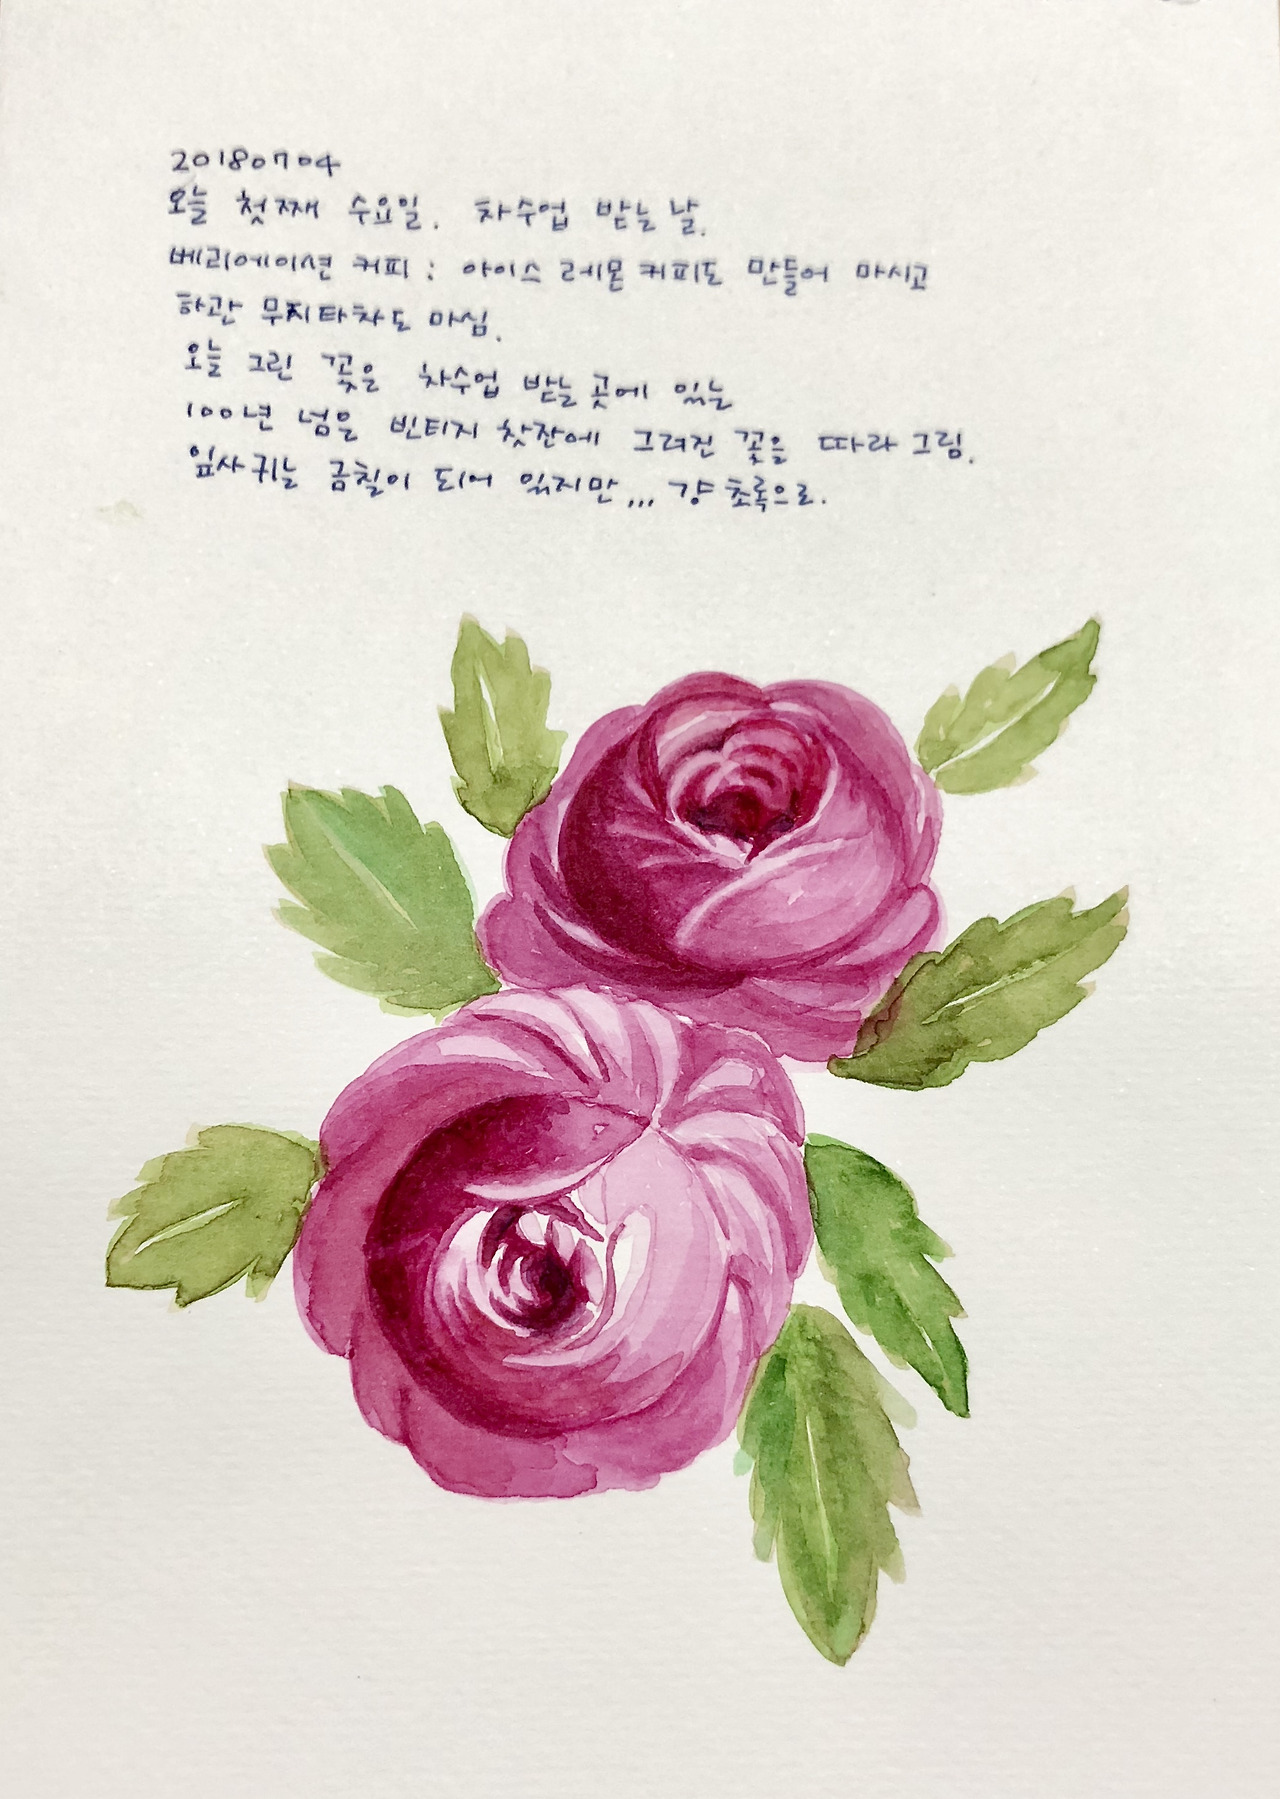 20180704
오늘 첫째 수요일. 차수업 받는 날.
베리에이션 커피 : 아이스 레몬 커피도 만들어 마시고
하관 무지타차도 마심.
오늘 그린 꽃은 차수업 받는 곳에 있는
100년 넘은 빈티지 찻잔에 그려진 꽃을 따라 그림.
잎사귀는 금칠이 되어 있지만... 걍 초록으로.